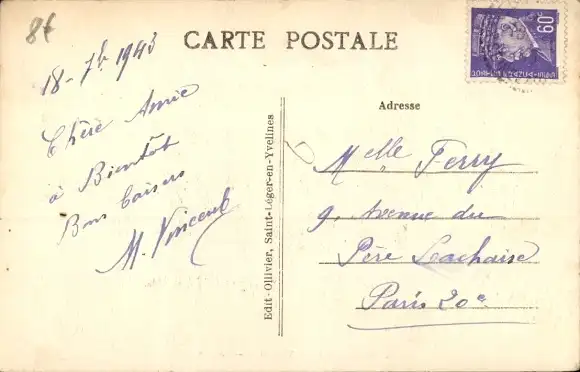 8f
CARTE POSTALE
60c
18-7bre 1943
Chère Amie
à Bientôt
Bons baisers
M. Vincent
Edit. Ollivier, Saint-Léger-en-Yvelines
Adresse
Melle Ferry
9, Avenue du
Père Lachaise
Paris 20e